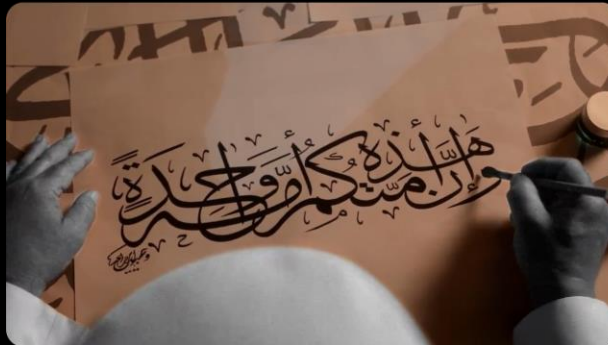 وَإِنَّ هَٰذِهِ أُمَّتُكُمْ أُمَّةً وَاحِدَةً